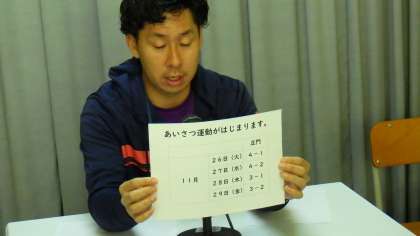 あいさつ運動がはじまります。
正門
26日（火） 4－1
27日（水） 4－2
11月
28日（木） 3－1
29日（金） 3－2